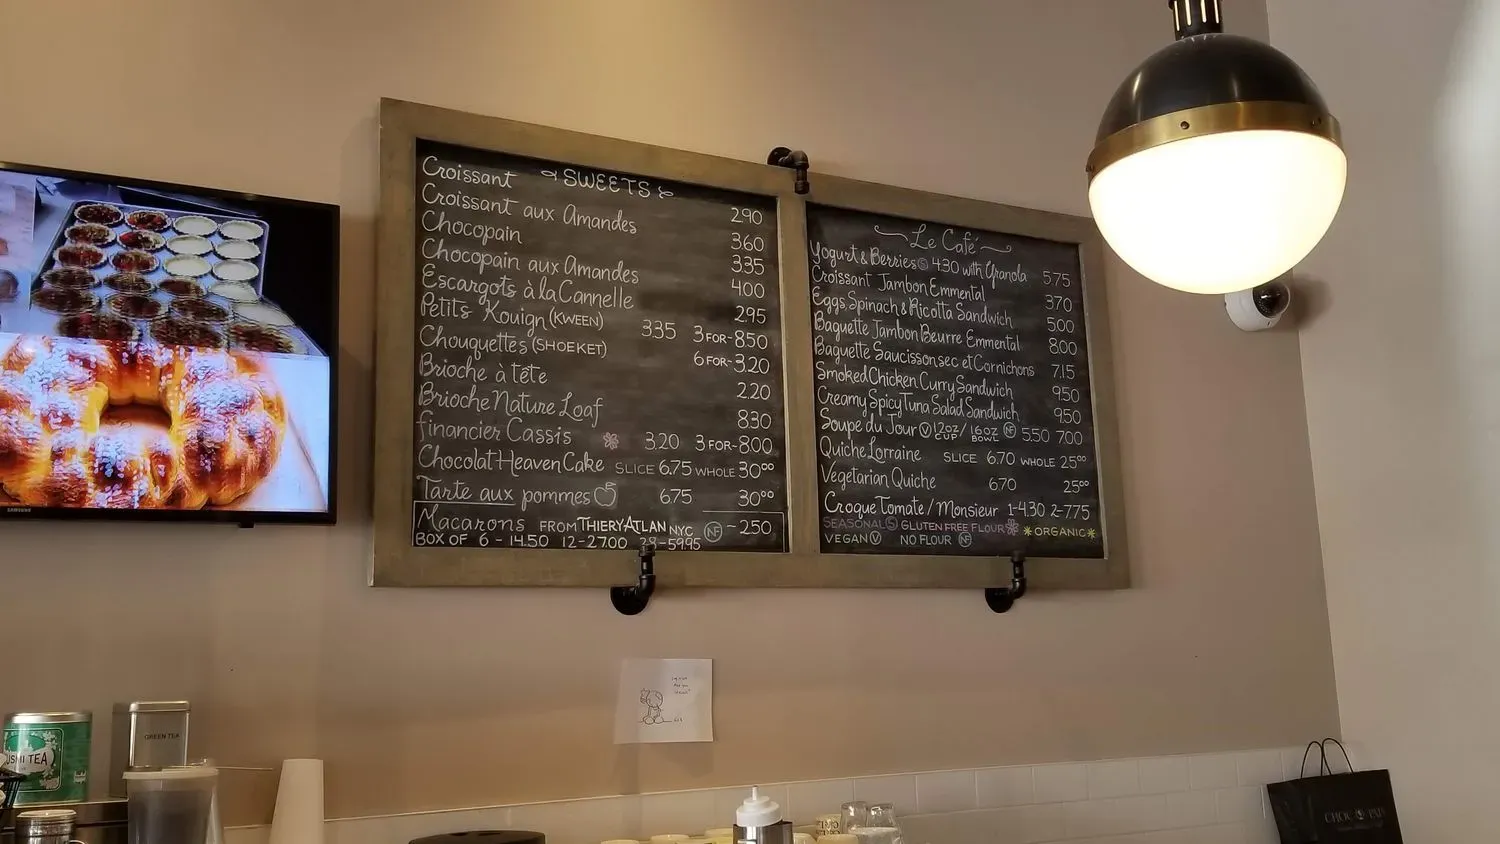 SWEETS
Croissant 2.90
Croissant aux Amandes 360
Chocopain 335
Chocopain aux Amandes 400
Escargots à la Cannelle 2.95
Petits Kouign (KWEEN) 335 3 FOR-850
Chouquettes (SHOEKET) 6 FOR-3.20
Brioche à tête 2.20
Brioche Nature Loaf 830
financier Cassis 3.20 3 FOR-8.00
Chocolat Heaven Cake SLICE 6.75 WHOLE 30⁰⁰
Tarte aux pommes 675 30⁰⁰
Macarons FROM THIERY ATLAN NYC NF -250
BOX OF 6 - 14.50 12-27.00 28-59.95
Le Café
Yogurt & Berries S 4.30 with Granola 5.75
Croissant Jambon Emmental 370
Eggs, Spinach & Ricotta Sandwich 500
Baguette Jambon Beurre Emmental 8.00
Baguette Saucisson sec et Cornichons 7.15
Smoked Chicken Curry Sandwich 950
Creamy Spicy Tuna Salad Sandwich 950
Soupe du Jour V 12oz CUP / 16oz BOWL NF 5.50 7.00
Quiche Lorraine SLICE 6.70 WHOLE 25⁰⁰
Vegetarian Quiche 670 25⁰⁰
Croque Tomate / Monsieur 1-4.30 2-775
SEASONAL S GLUTEN FREE FLOUR *ORGANIC*
VEGAN V NO FLOUR NF
SAMSUNG
GREEN TEA
TEA
CHOC PAIN